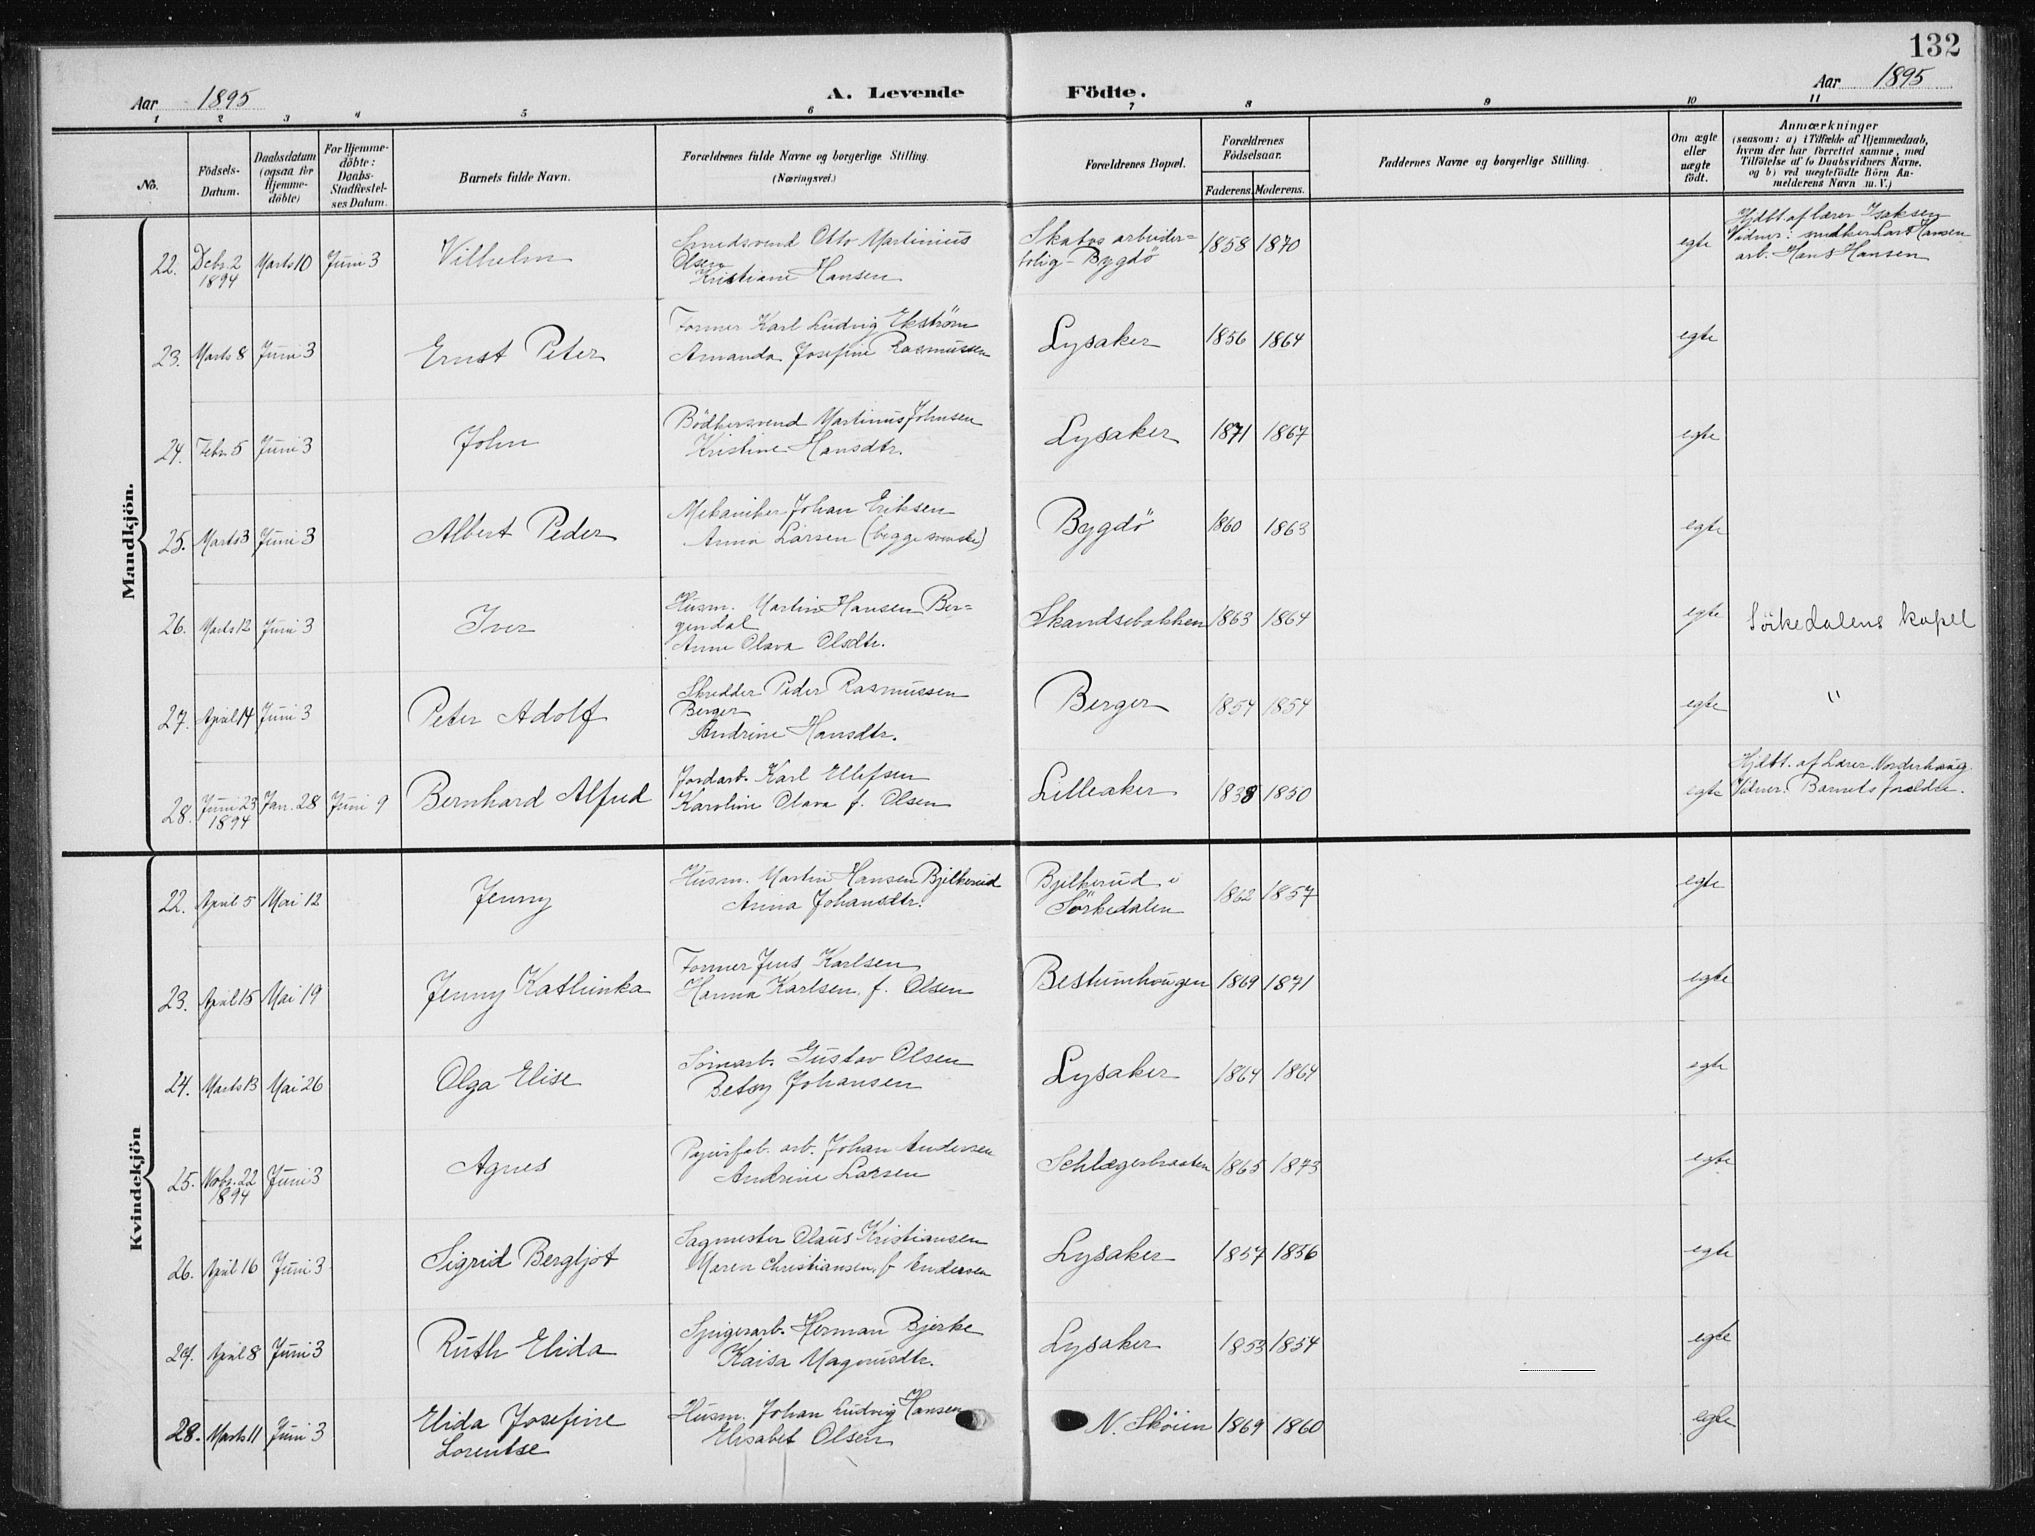 132
Aar 1895
A. Levende Födte.
Aar 1895
1 2 3 4 5 6 7 8 9 10 11
No.
Födsels-Datum.
Daabsdatum (ogsaa for Hjemme-döbte)
For Hjemme-döbte: Daabs-Stadfæstel-ses Datum.
Barnets fulde Navn.
Forældrenes fulde Navne og borgerlige Stilling.
(Næringsvei.)
Forældrenes Bopæl.
Forældrenes Födselsaar.
Faderens. Moderens.
Faddernes Navne og borgerlige Stilling.
Om ægte eller uægte födt.
Anmærkninger
(saasom: a) i Tilfælde af Hjemmedaab,
hvem der har forrettet samme, med
Tilföielse af to Daabsvidners Navne,
og b) ved uægtefödte Börn An-
melderens Navn m. V.)
Mandkjön.
22. Debr. 2 1894 Marts 10 Juni 3 Vilhelm
Smedsvend Otto Martinius
Olsen
Kristiane Hansen
Skabos arbeider=
bolig - Bygdö
1858 1870 egte
Hjdbt. af lærer Isaksen
Vidner: snedker Lars Hansen
arb. Hans Hansen
23. Marts 8 Juni 3 Ernst Peter
Former Karl Ludvig Ekström
Amanda Josefine Rasmussen
Lysaker 1856 1864 egte
24. Febr. 5 Juni 3 John
Bödkersvend Martinus Johnsen
Kristine Hansdtr.
Lysaker 1871 1867 egte
25. Marts 3 Juni 3 Albert Peder
Mekaniker Johan Eriksen
Anna Larsen (begge svenske)
Bygdö 1860 1863 egte
26. Marts 12 Juni 3 Iver
Husm. Martin Hansen Ber=
gendal
Anne Olava Olsdtr.
Skandsebakken 1863 1864 egte Sörkedalens kapel
27. April 14 Juni 3 Peter Adolf
Skredder Peder Rasmussen
Berger
Andrine Hansdtr.
Berger 1854 1854 egte "
28. Juni 23 1894 Jan. 28 Juni 9 Bernhard Alfred
Jordarb. Karl Ellefsen
Karoline Olava f. Olsen
Lilleaker 1838 1850 egte
Hjdbt. af Lærer Norderhaug
Vidner: Barnets foreldre.
Kvindekjön
22. April 5 Mai 12 Jenny
Husm. Martin Hansen Bjilkerud
Anna Johansdtr.
Bjilkerud i
Sörkedalen
1862 1857 egte
23. April 15 Mai 19 Jenny Kathinka
Former Jens Karlsen
Hanna Karlsen f. Olsen
Bestumhougen 1869 1871 egte
24. Marts 13 Mai 26 Olga Elise
Sömarb. Gustav Olsen
Betsy Johansen
Lysaker 1864 1864 egte
25. Novbr. 22 1894 Juni 3 Agnes
Papirfab. arb. Johan Andersen
Andrine Larsen
Schlægerbraaten 1865 1873 egte
26. April 16 Juni 3 Sigrid Bergljot
Sagmester Olaus Kristiansen
Maren Christiansen f. Endersen
Lysaker 1857 1856 egte
27. April 8 Juni 3 Ruth Elida
Spigerarb. Herman Bjerke
Kaisa Magnusdtr.
Lysaker 1853 1854 egte
28. Marts 11 Juni 3 Elida Josefine
Lorentse
Husm. Johan Ludvig Hansen
Elisabet Olsen
N. Sköien 1869 1860 egte